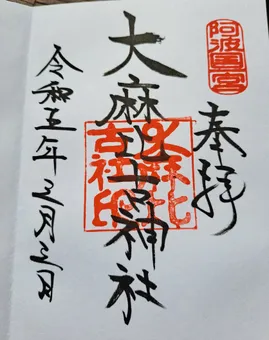 阿波国一宮
奉拝
大麻比古神社
大麻比
古社印
令和五年三月三日